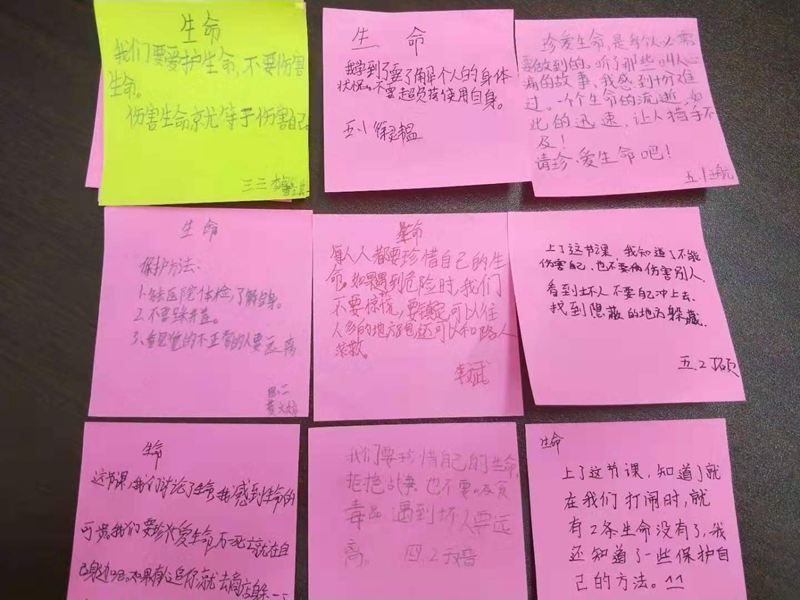 生命
我们要爱护生命,不要伤害
生命。
伤害生命就等于伤害自己
三三
生命
我学到了要了解个人的身体
状况。不要超负荷使用自身。
五1
珍爱生命,是每个人必需
要做到的。听了那些叫人心
痛的故事,我感到十分难
过。一个生命的流逝,如
此的迅速,让人措手不
及!
请珍爱生命吧!
五.1
生命
保护方法:
1.去医院体检,了解自身。
2.不要
3.看见的不正常的人要远离
四.二
生命
每人人都要珍惜自己的生
命。如果遇到危险时,我们
不要惊慌,要镇定可以往
人多的地方跑还可以和路人
求救。
上了这节课,我知道了不能
伤害自己,也不要伤害别人
看到坏人不要自己冲上去,
找到隐蔽的地方躲藏
五.2
生命
这节课,我们讨论了生命,我感到生命的
可贵,我们要珍爱生命
我们要珍惜自己的生命,
拒绝 也不要吸食
毒品,遇到坏人要远
离。 四.2
生命
上了这节课,知道了就
在我们打闹时,就
有2条生命没有了,我
还知道了一些保护自
己的方法。^^